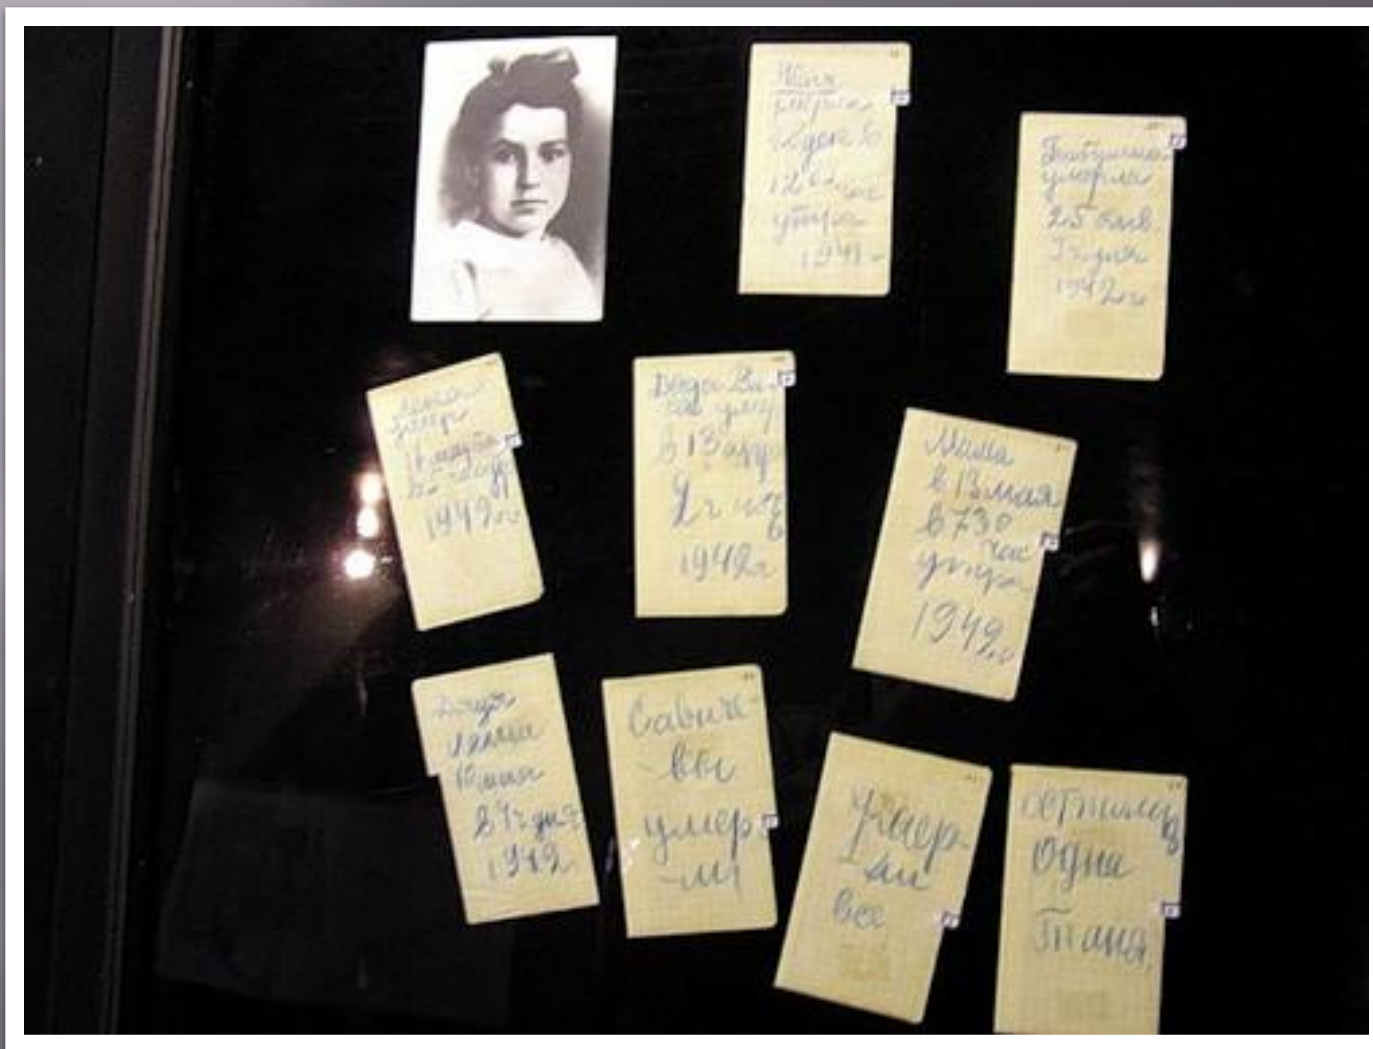 Женя
умерла
28 дек в
12 00 час
утра
1941 г
Бабушка
умерла
25 янв.
3 ч дня
1942 г.
умер
17 марта
1942 г
Дядя Ва
ся умер
в 13 апр
2 ч ноч
1942 г
Мама
в 13 мая
в 7 30
час
утра
1942 г
Дядя
Леша
10 мая
в 4 ч дня
1942 г
Савиче-
-вы
умер-
-ли
Умер-
ли
все
осталась
одна
Таня